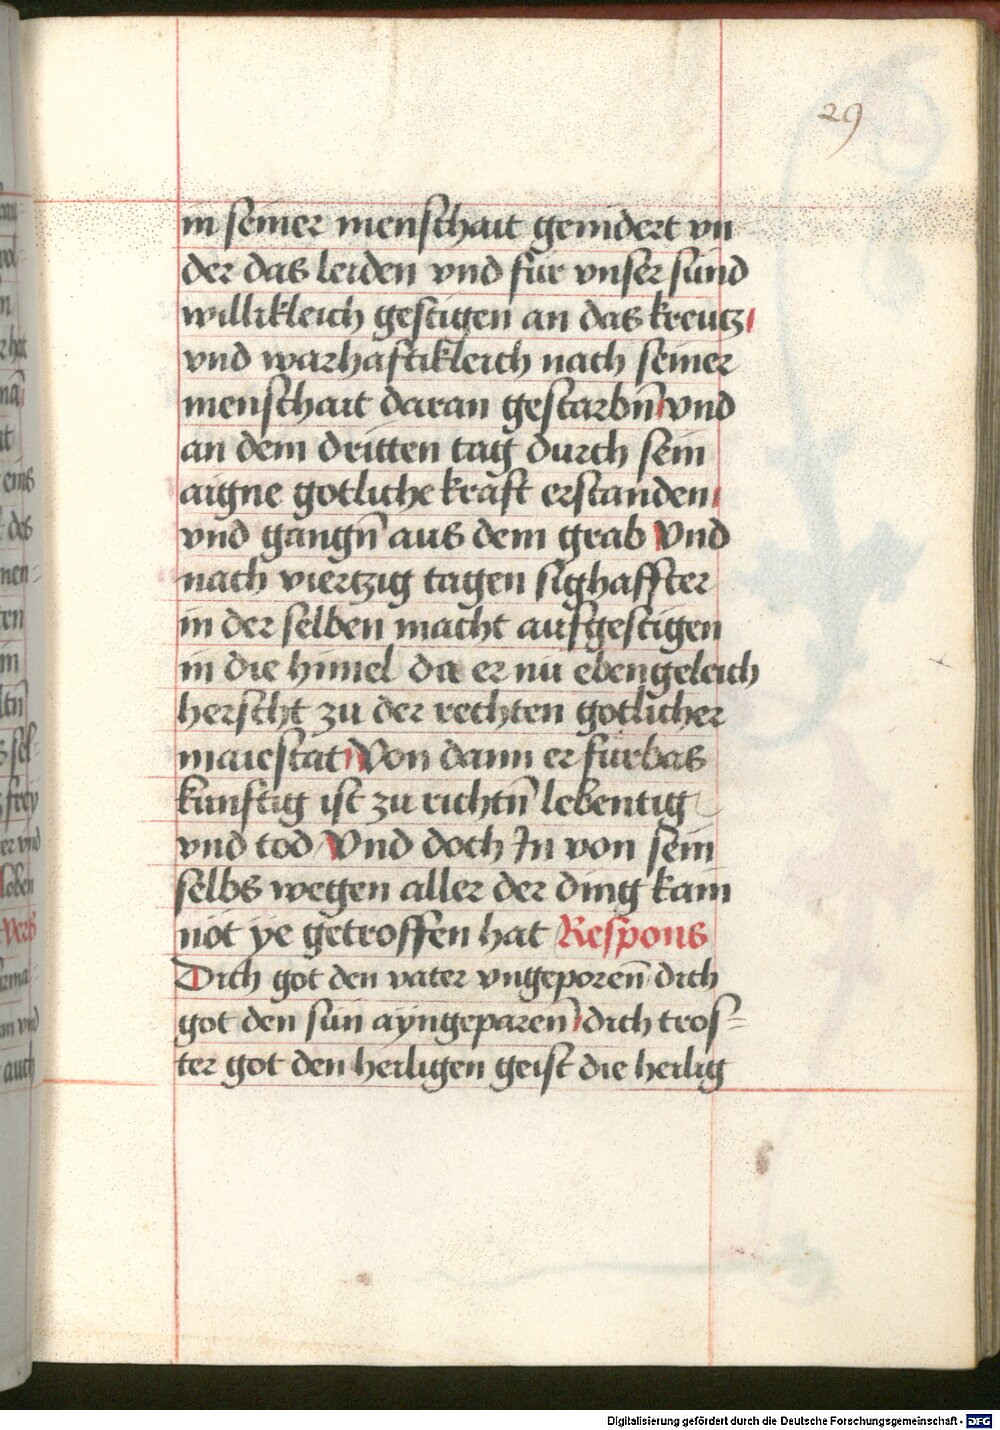 29
in seiner menschait genidert vn
der das leiden vnd für vnser sünd
willikleich gestigen an das kreutz
vnd warhaftikleich nach seiner
menschait daran gestarbn̄ vnd
an dem dritten tag durch sein
aigne gotliche kräft erstanden
vnd gangn̄ aus dem grab Vnd
nach viertzig tagen sighaffter
in der selben macht aufgestigen
in die himel da er nu ebengeleich
herscht zu der rechten gotlicher
maiestat Von dann er fürbas
künftig ist zu richtn̄ lebentig
vnd tod Vnd doch In von sein
selbs wegen aller der ding kain
nöt ye getroffen hat Respons
Dich got den vater vngeporen̄ dich
got den sün ayngeparen̄ dich tros=
ter got den heiligen geist die heilig
Digitalisierung gefördert durch die Deutsche Forschungsgemeinschaft - DFG